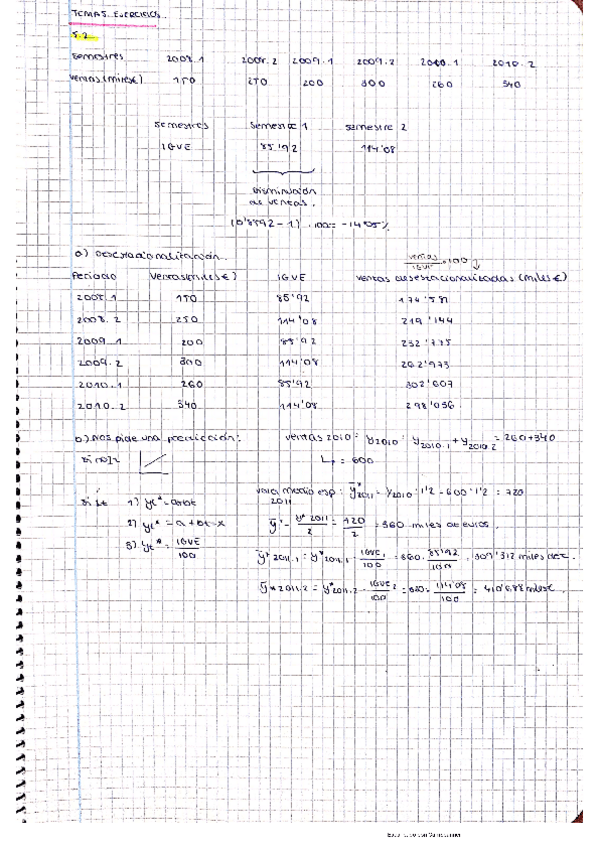 TEMA 5. EJERCICIOS.
5.2
semestres 2008.1 2008.2 2009.1 2009.2 2010.1 2010.2
ventas (miles€) 150 250 200 300 260 340
semestres semestre 1 semestre 2
IGVE 85'92 114'08
Disminución
de ventas.
(0'8592 - 1) . 100 = -14'08%
a) Desestacionalización.
ventas/IGVE . 100
Periodo ventas (miles€) IGVE ventas desestacionalizadas (miles€)
2008.1 150 85'92 174'581
2008.2 250 114'08 219'144
2009.1 200 85'92 232'775
2009.2 300 114'08 262'973
2010.1 260 85'92 302'607
2010.2 340 114'08 298'036
b) nos pide una predicción: ventas 2010 = y2010 = y2010.1 + y2010.2 = 260+340
si no
↳ = 600
1) yt* = a+bt
2) yt* = a + bt
3) yt* = IGVE/100
2011
y2010 . 1'2 = 600 . 1'2 = 720
y* 2011/2 = 720/2 = 360 miles de euros.
IGVE1/100 = 360 . 85'92/100 = 309'312 miles de €.
IGVE2/100 = 114'08/100 = 410'688 miles€.